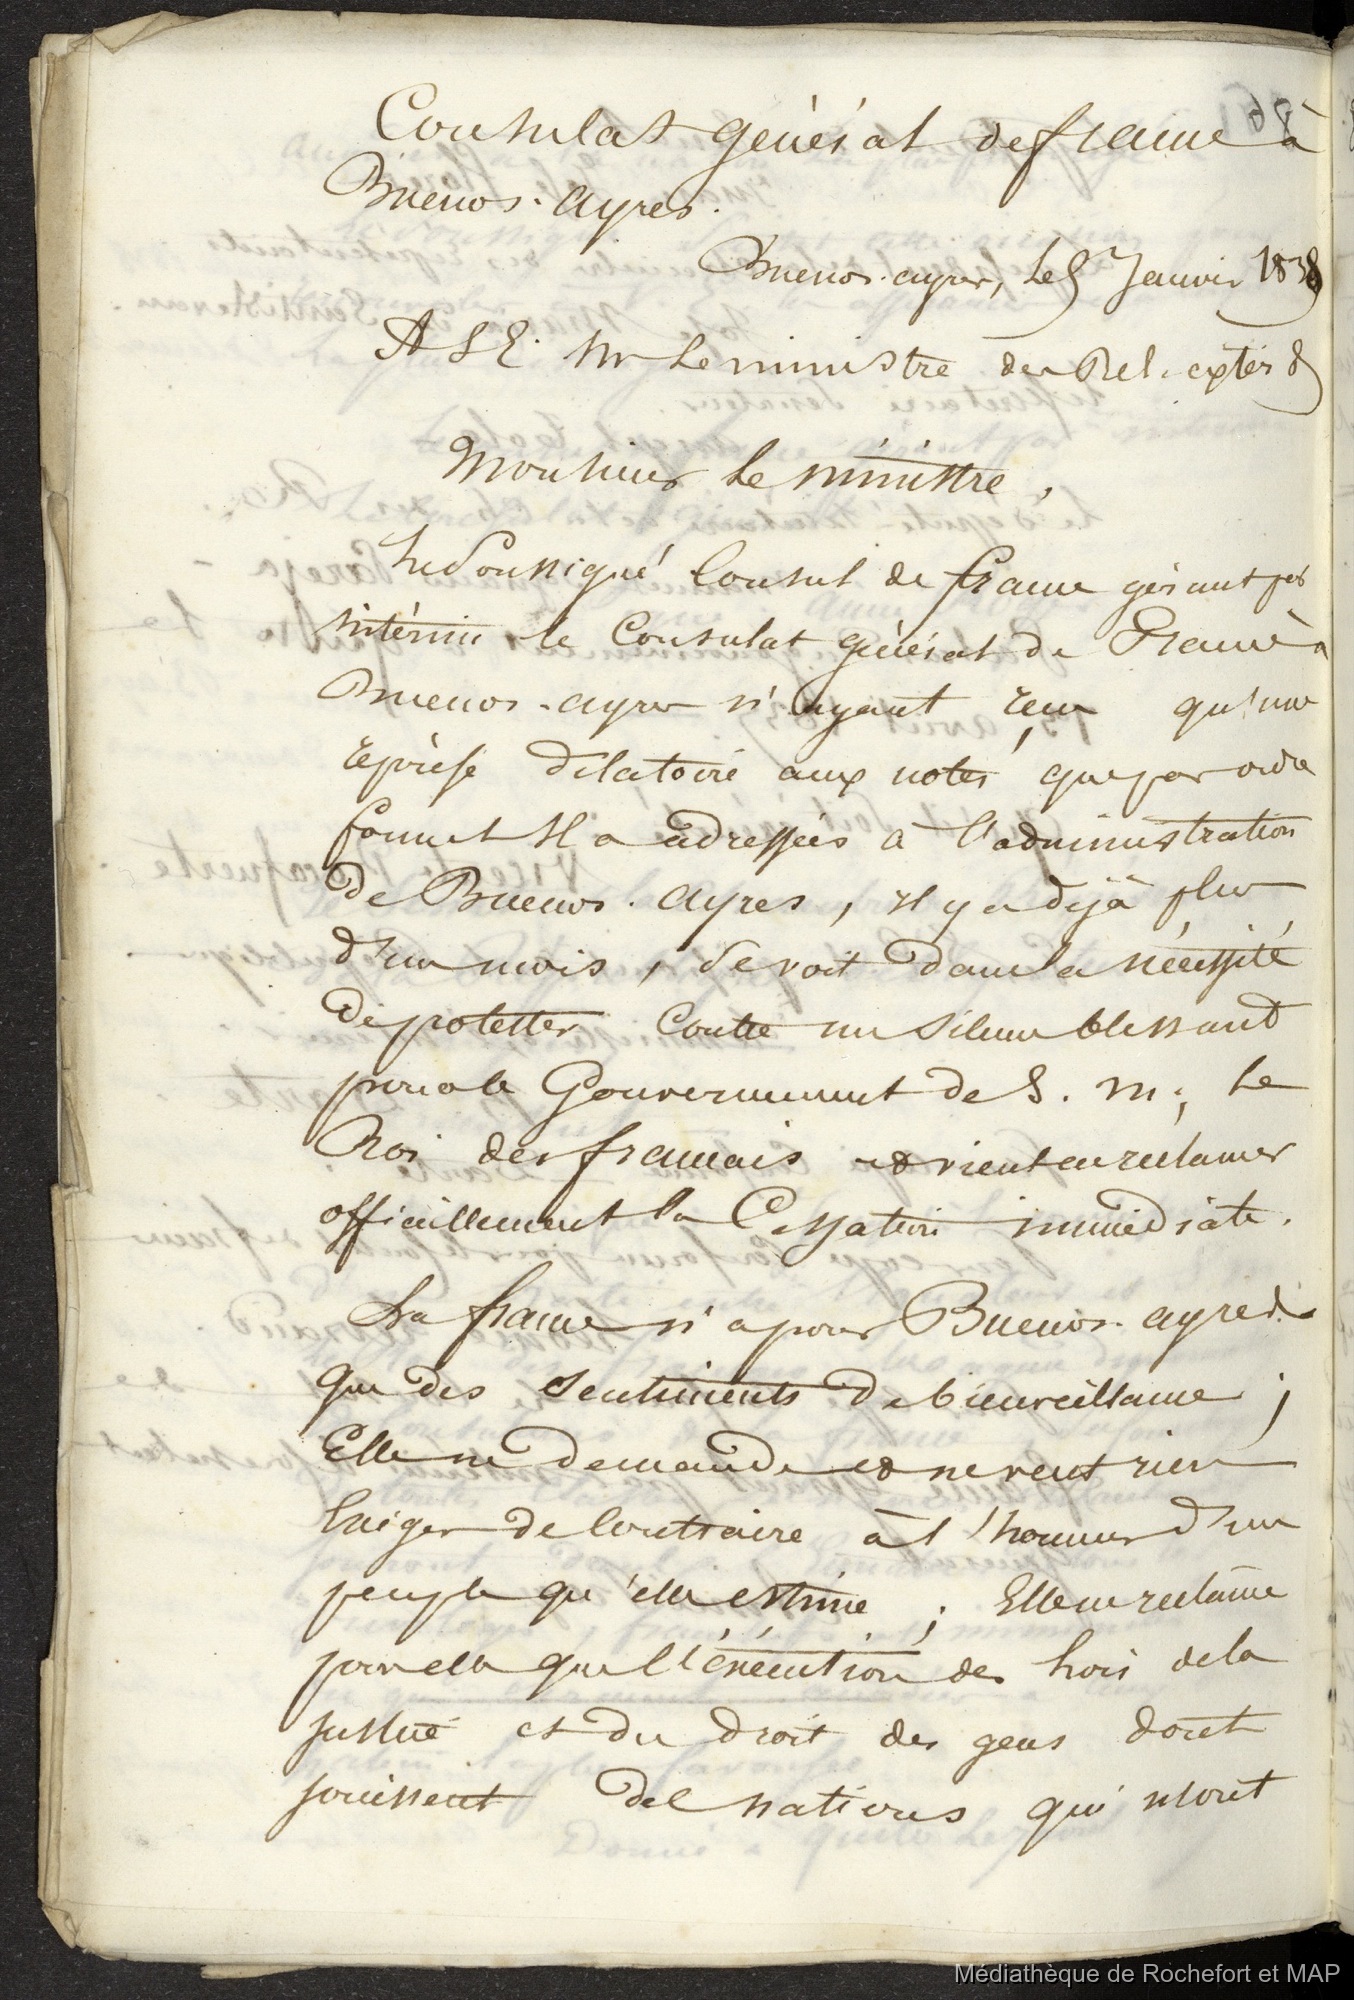 Consulat général de france à
Buenos-ayres.
Buenos-ayres, le Janvier 1838
A S E. Mr le ministre des Rel. extér
Monsieur le ministre,
Le Soussigné Consul de france gérant par
intérim le Consulat général de France à
Buenos-ayres n'ayant reçu qu'une
réponse dilatoire aux notes que par ordre
formel il a adressées à l'administration
de Buenos-Ayres, il y a déjà plus
d'un mois, se voit dans la nécessité
de protester contre un silence blessant
pour le Gouvernement de S. M. le
Roi des français et vient en réclamer
officiellement la Cessation immédiate.
La france n'a pour Buenos-ayres
que des sentiments de bienveillance;
Elle ne demande et ne veut rien
Exiger de Contraire à l'honneur d'un
peuple qu'elle estime; Elle ne réclame
pour elle que l'exécution des lois de la
justice et du droit des gens dont
jouissent des nations qui n'ont
Médiathèque de Rochefort et MAP